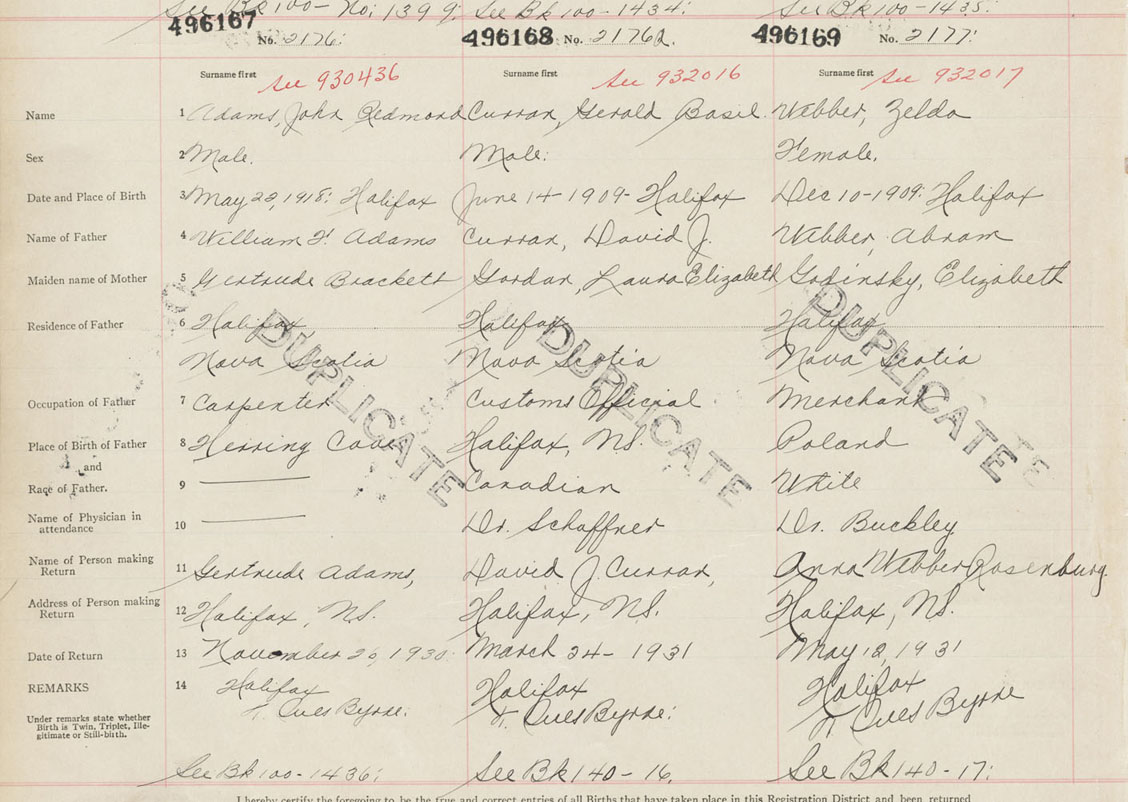 See Bk 100- No: 1399: See Bk 100-1434: See Bk 100-1435:
496167 No. 2176: 496168 No. 2176½. 496169 No. 2177:
Surname first See 930436 Surname first See 932016 Surname first See 932017
Name 1 Adams, John Redmond Curran, Gerald Basil. Webber, Zelda
Sex 2 Male. Male: Female.
Date and Place of Birth 3 May 22, 1918: Halifax June 14-1909- Halifax Dec 10-1909: Halifax
Name of Father 4 William F. Adams Curran, David J. Webber, Abram
Maiden name of Mother 5 Gertrude Brackett Gordan, Laura Elizabeth Godinsky, Elizabeth
Residence of Father 6 Halifax Halifax Halifax
Nova Scotia Nova Scotia Nova Scotia
DUPLICATE DUPLICATE DUPLICATE
Occupation of Father 7 Carpenter Customs Official Merchant
Place of Birth of Father 8 Herring Cove Halifax, NS. Poland
and
Race of Father. 9 Canadian White
Name of Physician in
attendance 10 Dr. Schaffner Dr. Buckley
Name of Person making
Return 11 Gertrude Adams, David J. Curran, Anna Webber Rosenburg.
Address of Person making
Return 12 Halifax, NS. Halifax, NS. Halifax, NS.
Date of Return 13 November 20, 1930: March 24- 1931 May 12, 1931
REMARKS 14 Halifax Halifax Halifax
Byrne: Byrne: Byrne
Under remarks state whether
Birth is Twin, Triplet, Ille-
gitimate or Still-birth.
See Bk 100-1436: See Bk 140-16. See Bk 140-17:
I hereby certify the foregoing to be the true and correct entries of all Births that have taken place in this Registration District and been returned